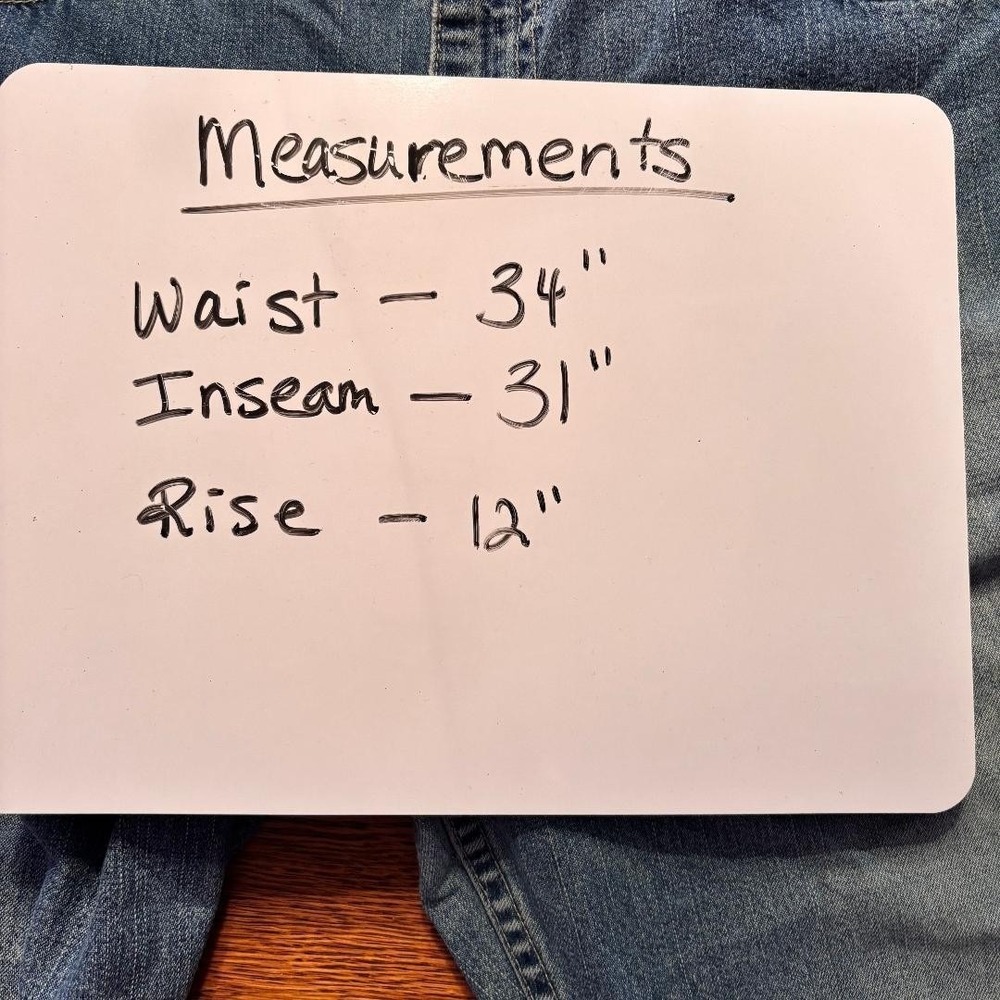 Measurements
Waist - 34"
Inseam - 31"
Rise - 12"